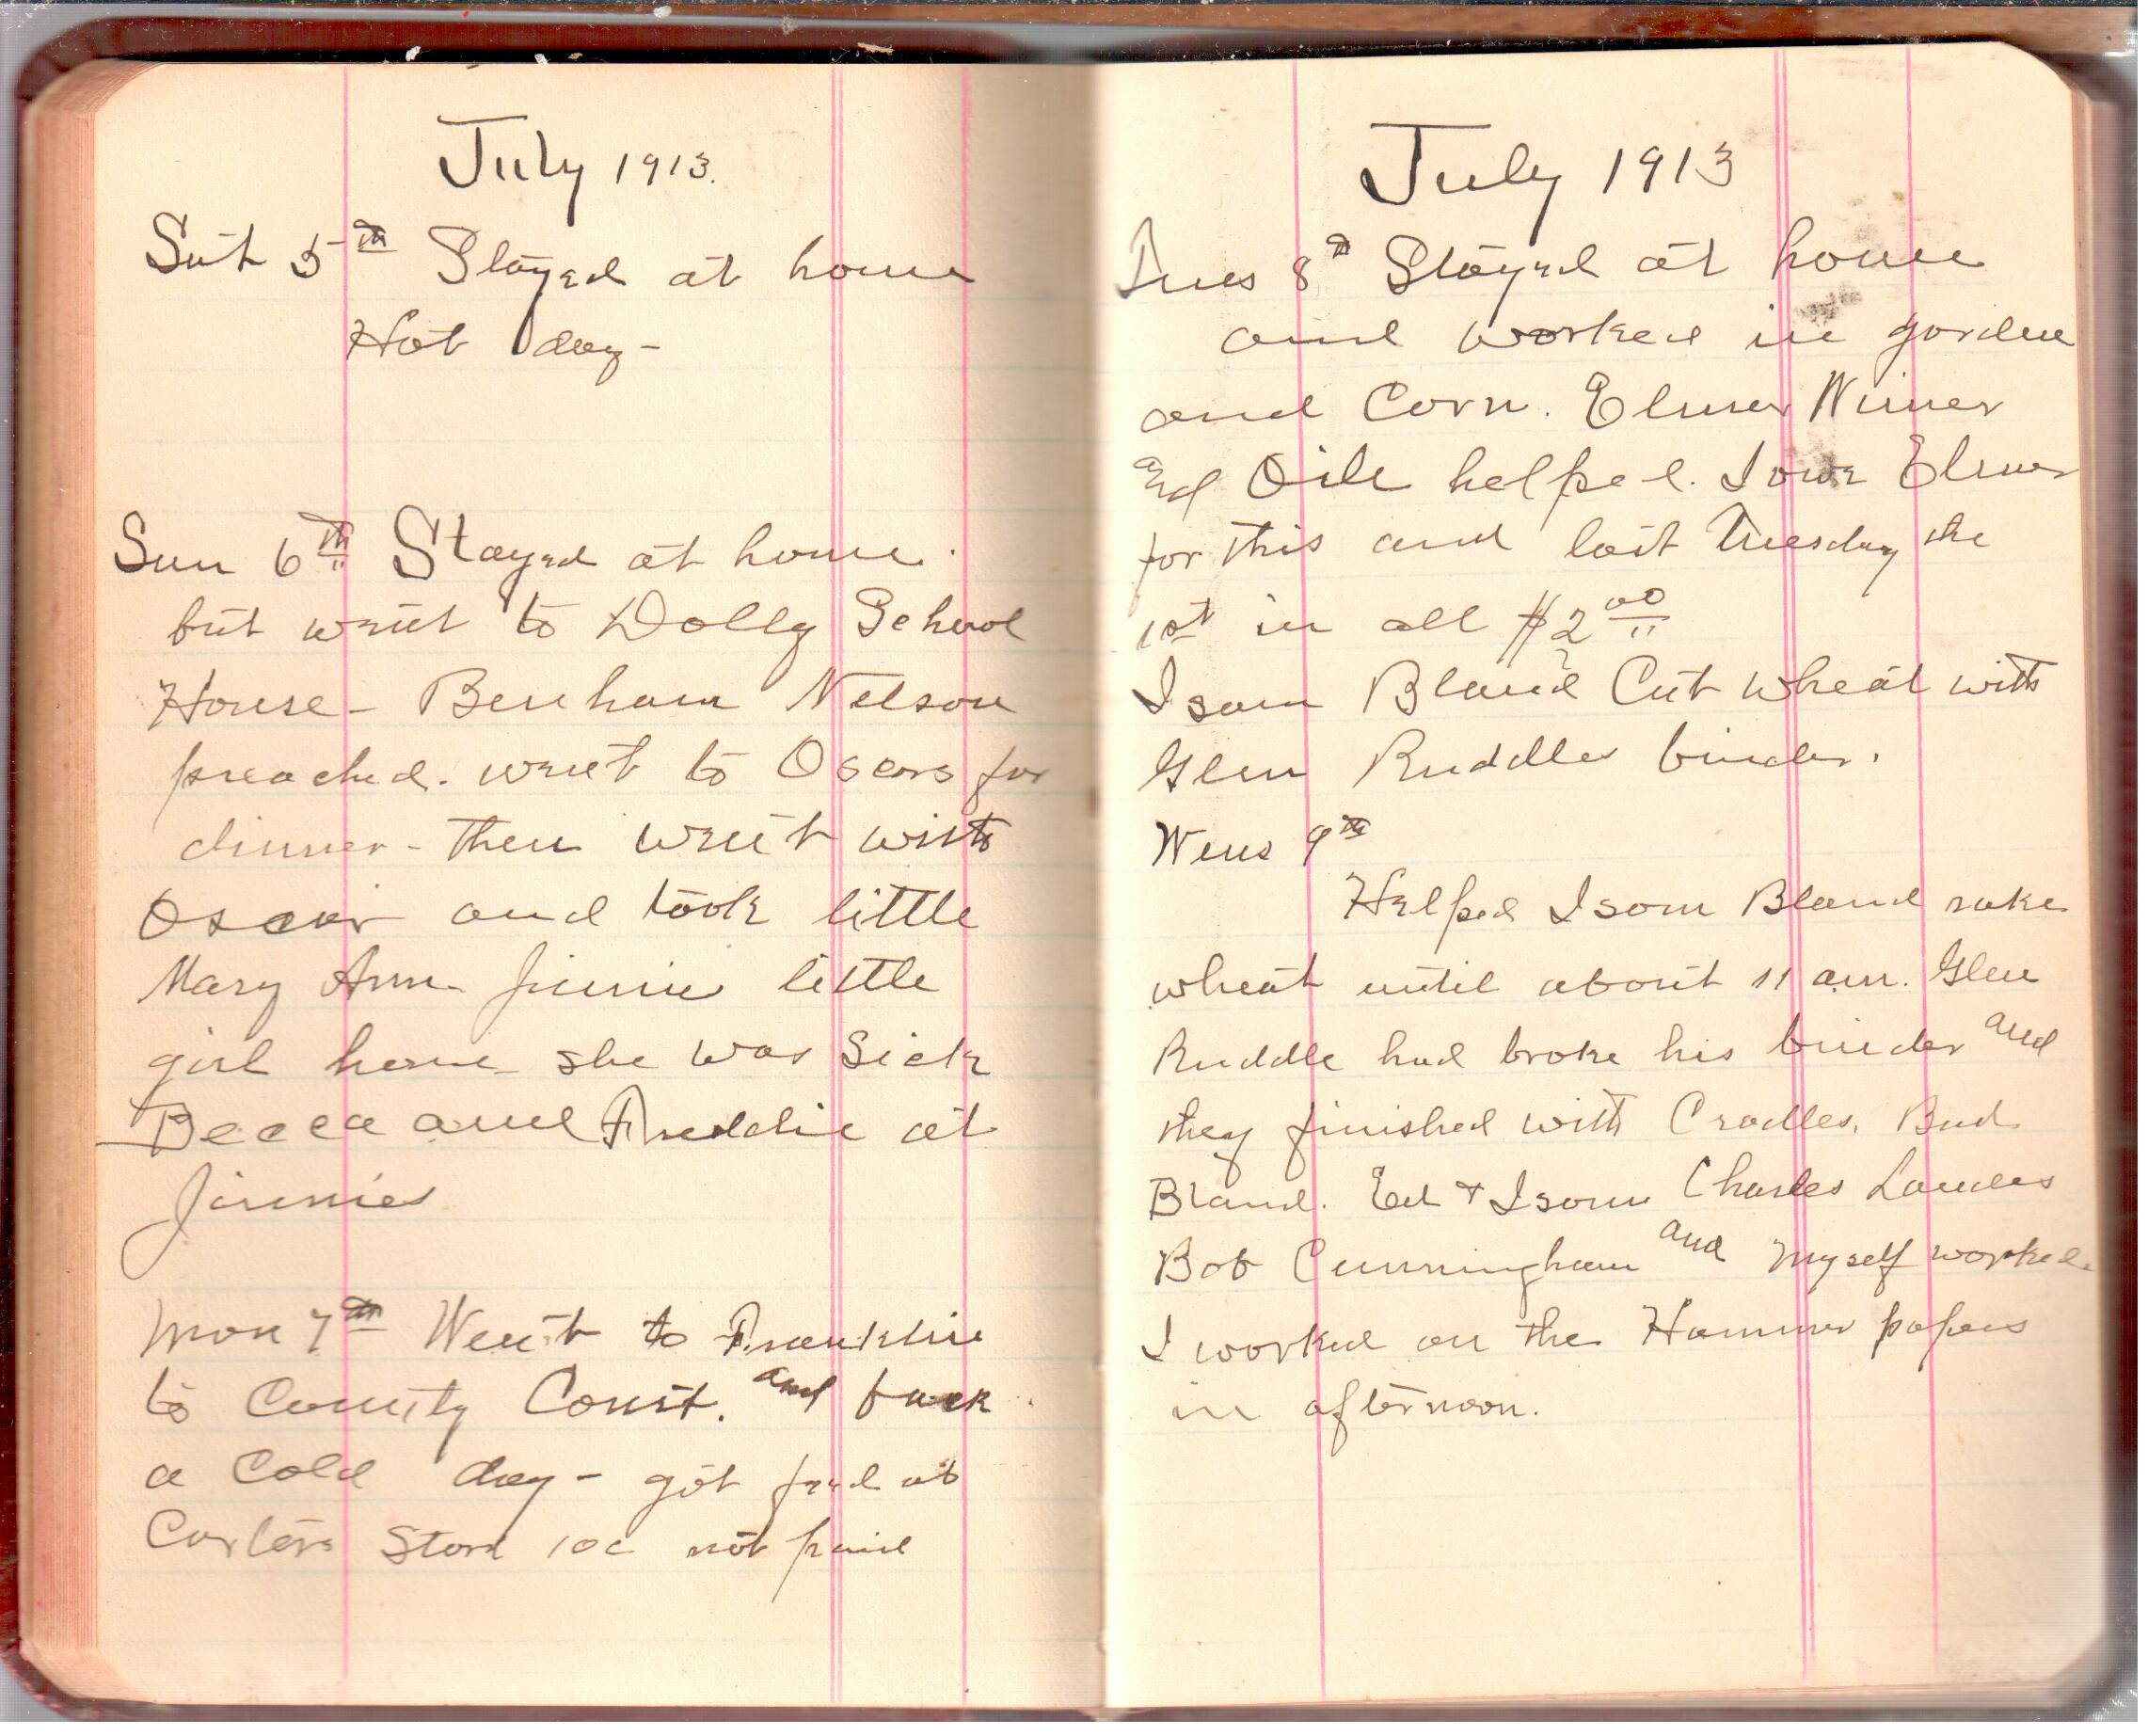 July 1913.
Sat 5th Stayed at home
Hot day -
Sun 6th Stayed at home.
but went to Dolly School
House - Benham Nelson
preached. went to Oscars for
dinner - then went with
Oscar and took little
Mary Ann Jimmie little
girl home she was sick
Becca and Freddie at
Jimmies
Mon 7th Went to Franklin
to County Court. and back
a Cold day - got feed at
Carters Store 10c not paid
July 1913
Tues 8th Stayed at home
and worked in garden
and Corn. Elmer Wimer
and helped. I owe Elmer
for this and last Tuesday the
1st in all $2.00
Isom Bland Cut wheat with
Glen Ruddles binder.
Wens 9th
Helped Isom Bland rake
wheat until about 11 am. Glen
Ruddle had broke his binder and
they finished with Cradles. Bud
Bland. Ed + Isom Charles Landes
Bob Cunningham and myself worked.
I worked on the Hammer papers
in afternoon.